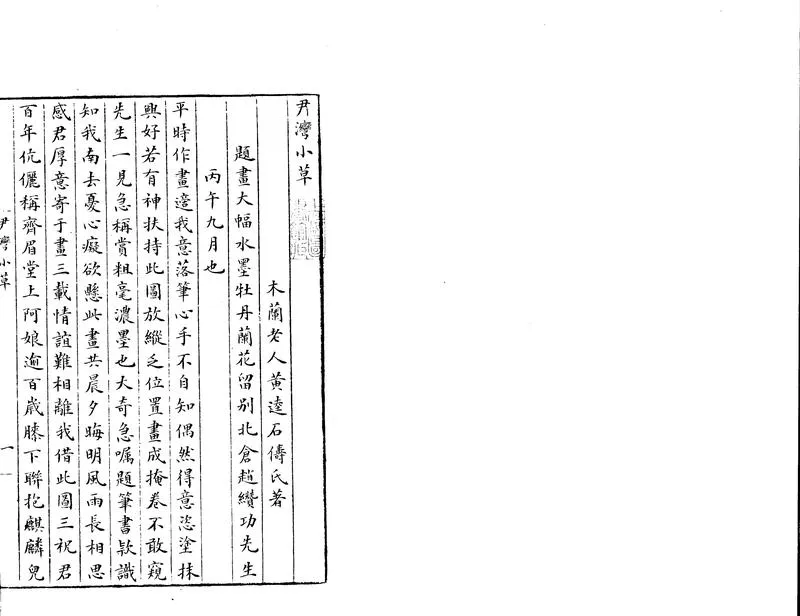 尹灣小草
木蘭老人黃逵石儔氏著
題畫大幅水墨牡丹蘭花留別北倉趙纘功先生
丙午九月也
平時作畫達我意落筆心手不自知偶然得意恣塗抹
興好若有神扶持此圖放縱乏位置畫成掩卷不敢窺
先生一見急稱賞粗毫濃墨也大奇急囑題筆書款識
知我南去憂心癡欲懸此畫共晨夕晦明風雨長相思
感君厚意寄于畫三載情誼難相離我借此圖三祝君
百年伉儷稱齊眉堂上阿娘逾百歲膝下聯抱麒麟兒
尹灣小草
一